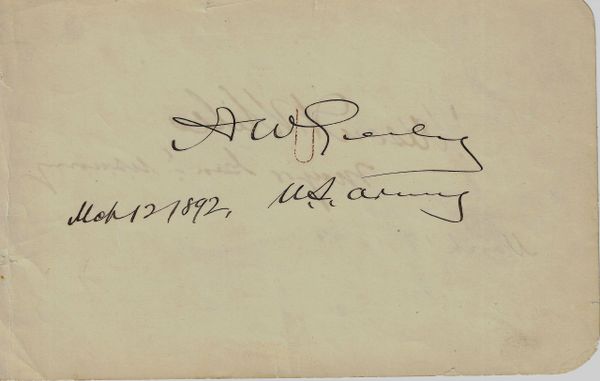 A W Greely
U.S. Army
Mch 12 1892,